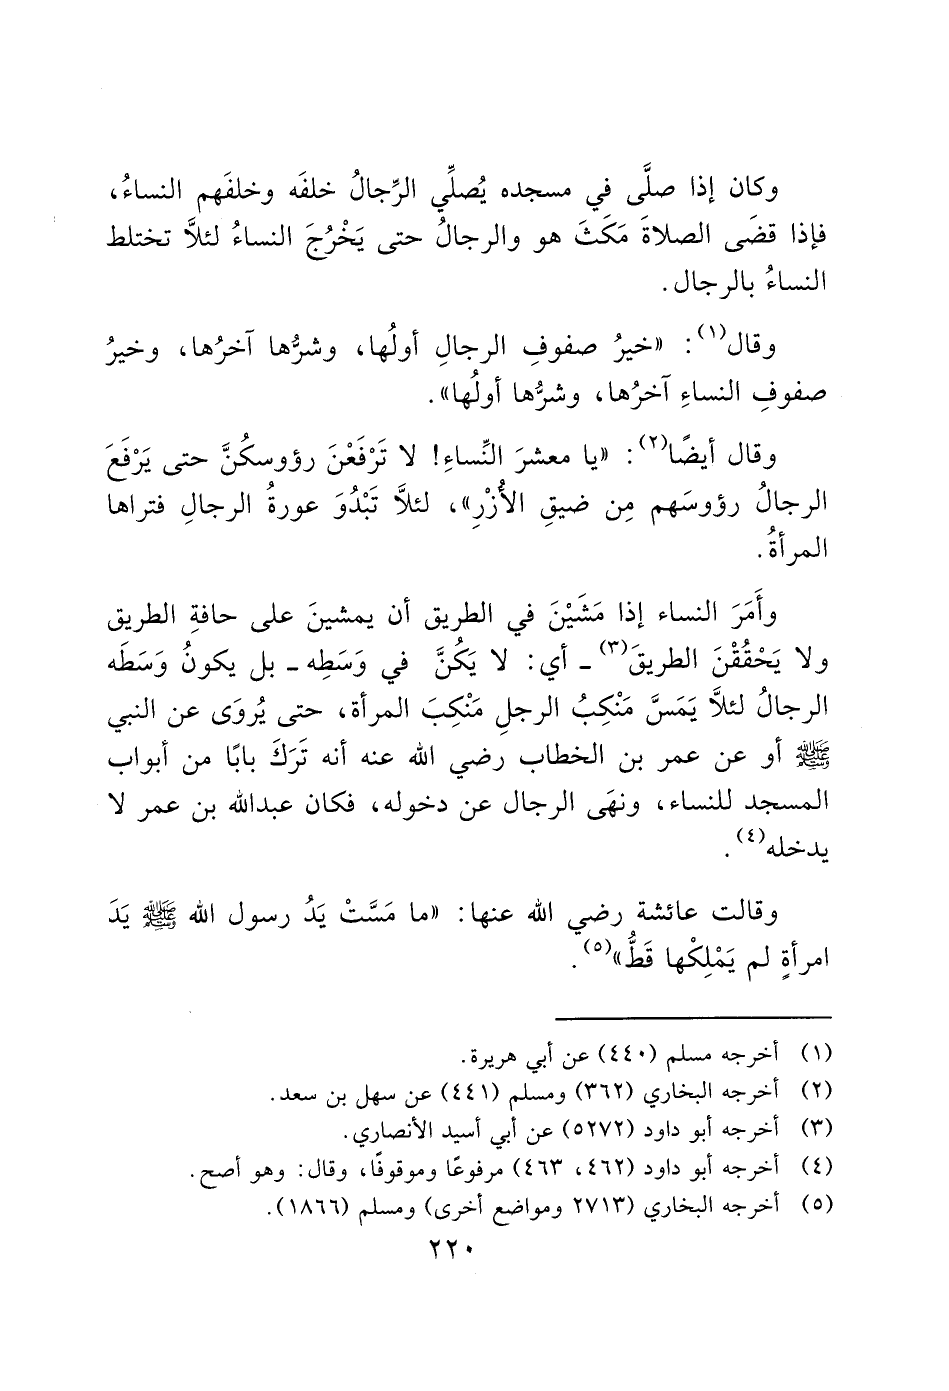 وكان إذا صلَّى في مسجده يُصلِّي الرِّجالُ خلفَه وخلفَهم النساءُ،
فإذا قضَى الصلاةَ مَكَثَ هو والرجالُ حتى يَخْرُجَ النساءُ لئلاَّ تختلط
النساءُ بالرجال.
وقال(١): «خيرُ صفوفِ الرجالِ أولُها، وشرُّها آخرُها، وخيرُ
صفوفِ النساءِ آخرُها، وشرُّها أولُها».
وقال أيضًا(٢): «يا معشرَ النِّساءِ! لا تَرْفَعْنَ رؤوسكُنَّ حتى يَرْفَعَ
الرجالُ رؤوسَهم مِن ضيقِ الأُزْرِ»، لئلاَّ تَبْدُوَ عورةُ الرجالِ فتراها
المرأةُ.
وأَمَرَ النساء إذا مَشَيْنَ في الطريق أن يمشينَ على حافةِ الطريق
ولا يَحْقُقْنَ الطريقَ(٣) ـ أي: لا يَكُنَّ في وَسَطِه ـ بل يكونُ وَسَطَه
الرجالُ لئلاَّ يَمَسَّ مَنْكِبُ الرجلِ مَنْكِبَ المرأة، حتى يُروَى عن النبي
ﷺ أو عن عمر بن الخطاب رضي الله عنه أنه تَرَكَ بابًا من أبواب
المسجد للنساء، ونهَى الرجال عن دخوله، فكان عبدالله بن عمر لا
يدخله(٤).
وقالت عائشة رضي الله عنها: «ما مَسَّتْ يَدُ رسول الله ﷺ يَدَ
امرأةٍ لم يَمْلِكْها قَطُّ»(٥).
(١) أخرجه مسلم (٤٤٠) عن أبي هريرة.
(٢) أخرجه البخاري (٣٦٢) ومسلم (٤٤١) عن سهل بن سعد.
(٣) أخرجه أبو داود (٥٢٧٢) عن أبي أسيد الأنصاري.
(٤) أخرجه أبو داود (٤٦٢، ٤٦٣) مرفوعًا وموقوفًا، وقال: وهو أصح.
(٥) أخرجه البخاري (٢٧١٣ ومواضع أخرى) ومسلم (١٨٦٦).
٢٢٠